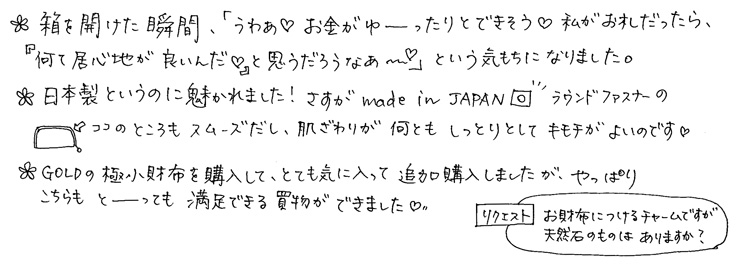 ✽ 箱を開けた瞬間、「うわぁ♡ お金がゆーったりとできそう♡ 私がお札だったら、
『何て居心地が良いんだ♡』と思うだろうなあ〜♡」という気もちになりました。
✽ 日本製というのに魅かれました! さすが made in JAPAN ラウンドファスナーの
ココのところもスムーズだし、肌ざわりが何ともしっとりとしてキモチがよいのです♡
✽ GOLDの極小財布を購入して、とても気に入って追加購入しましたが、やっぱり
こちらもとーっても満足できる買物ができました♡。。
リクエスト お財布につけるチャームですが
天然石のものはありますか?